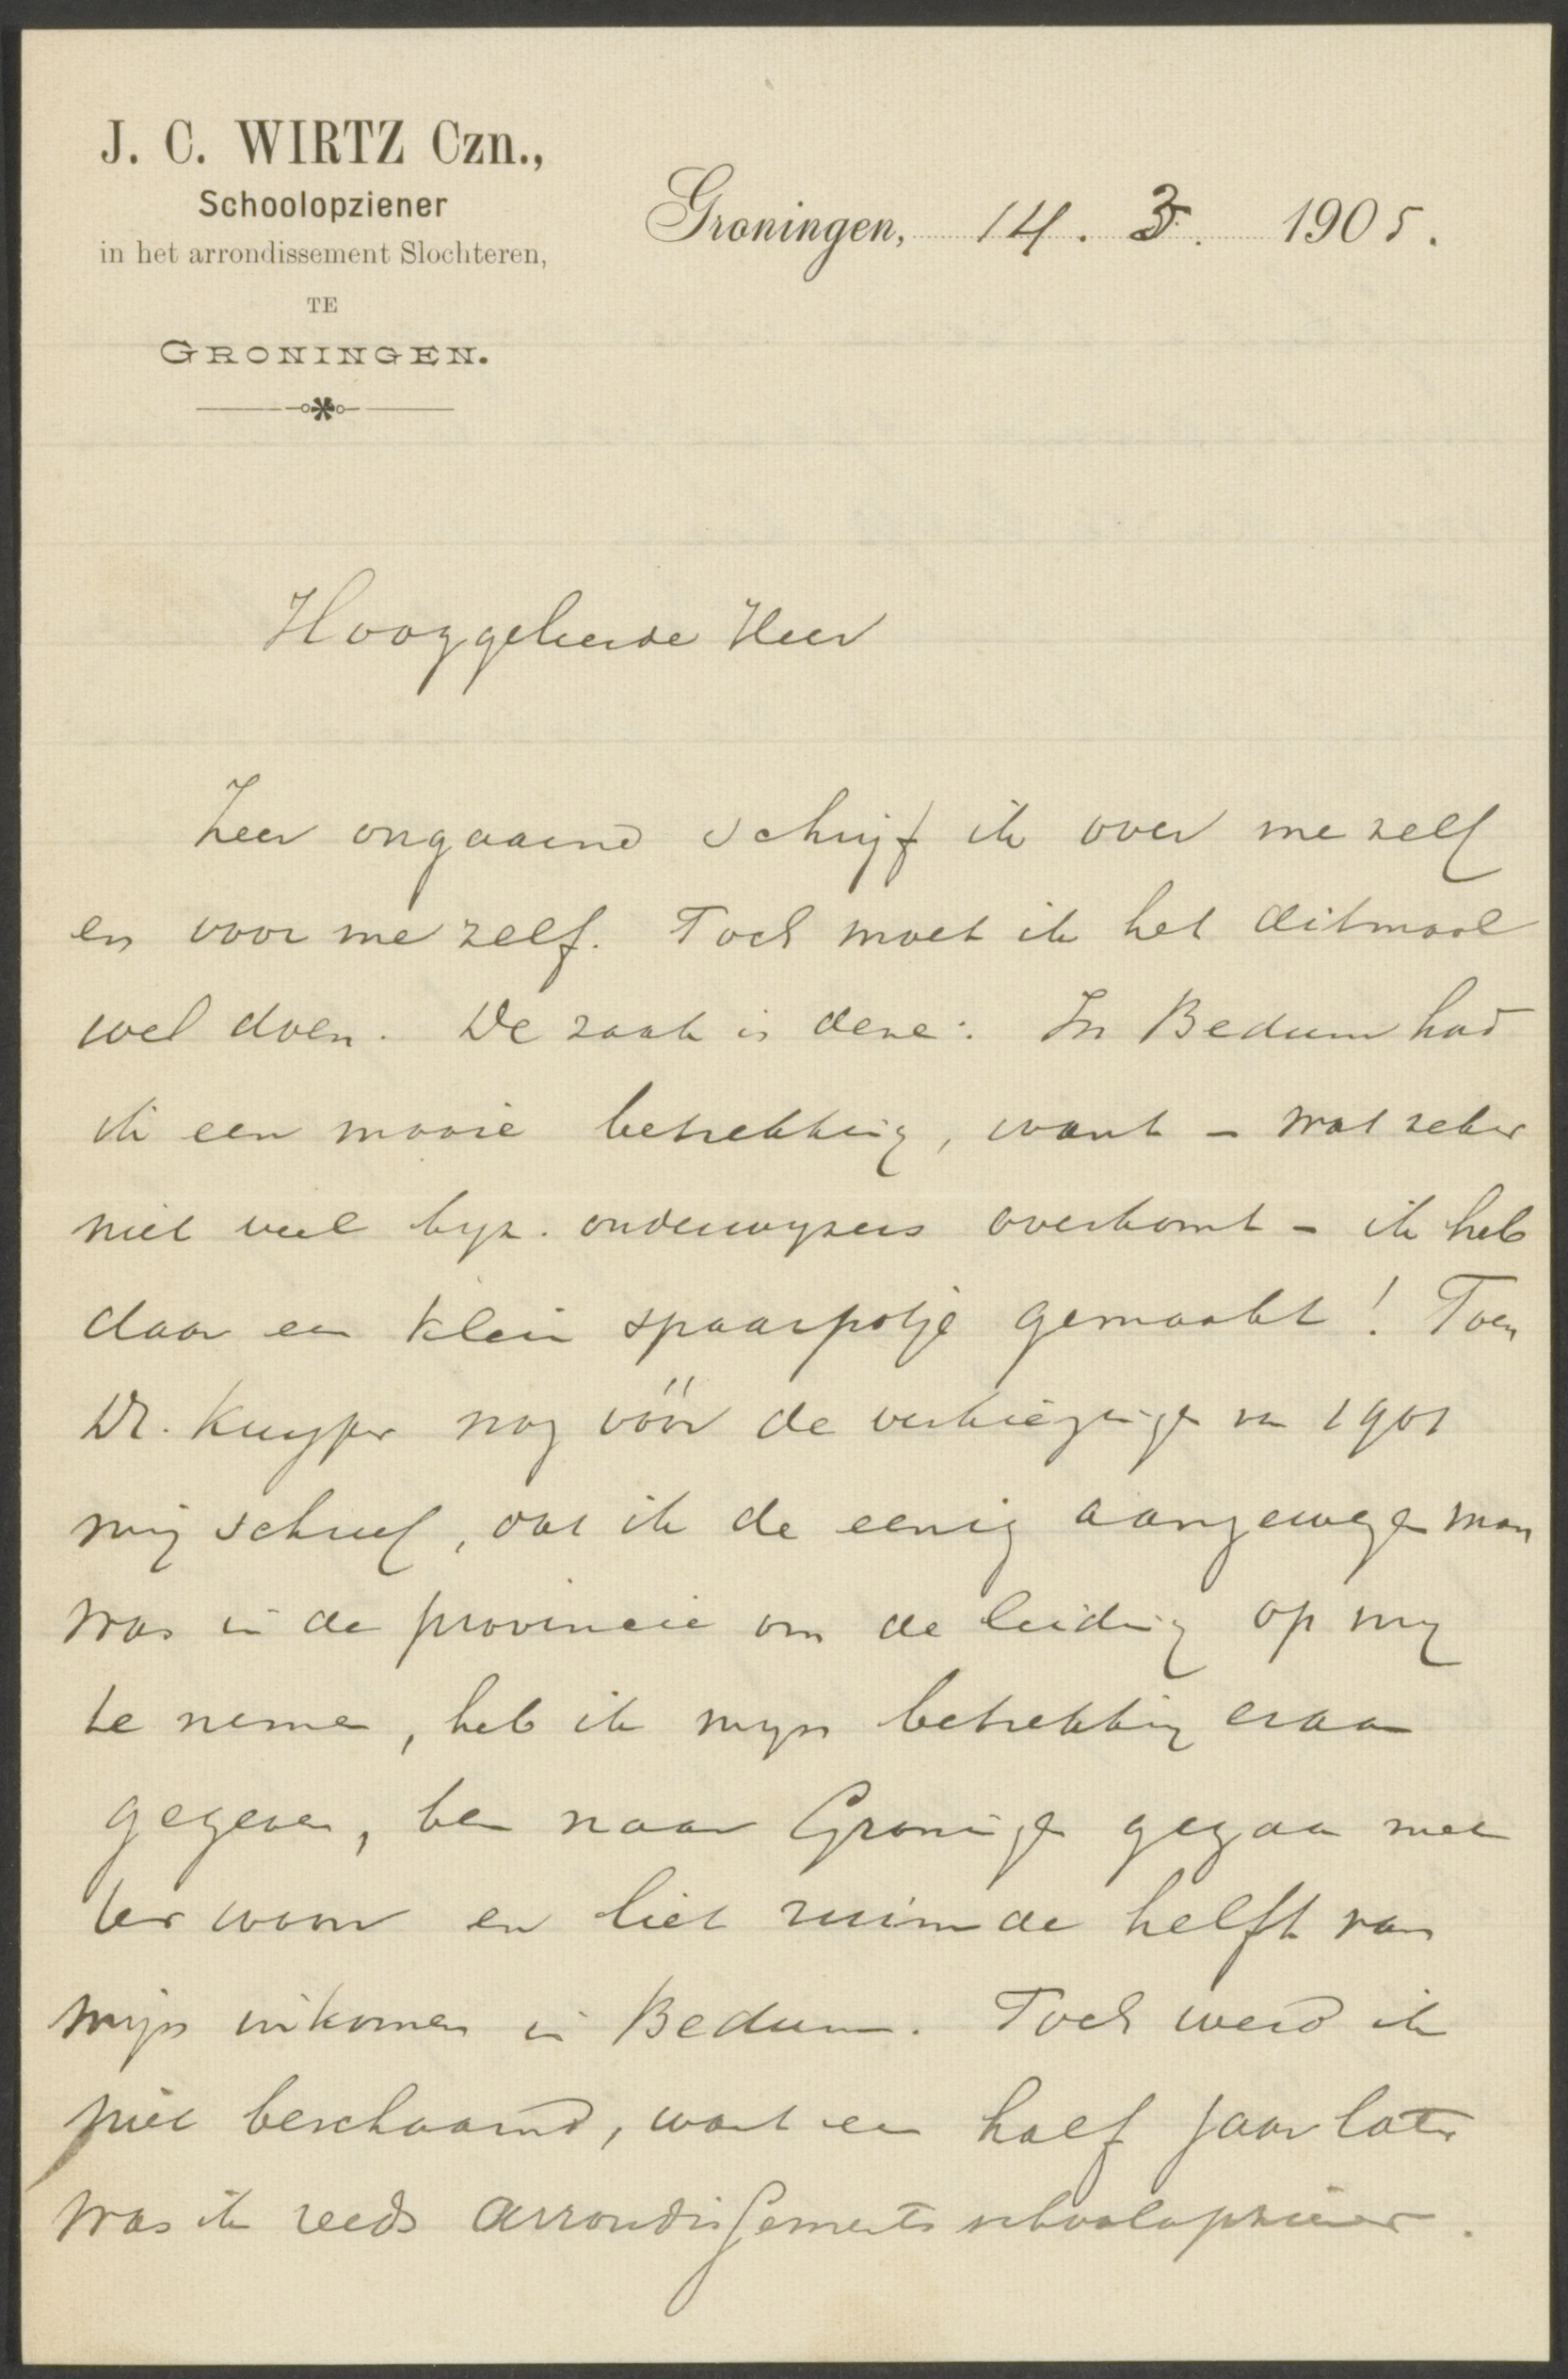 J. C. WIRTZ Czn.,
Schoolopziener
in het arrondissement Slochteren,
TE
GRONINGEN.
Groningen, 14. 3. 1905.
Hooggeleerde Heer
Zeer ongaarne schrijf ik over me zelf
en voor me zelf. Toch moet ik het ditmaal
wel doen. De zaak is deze: In Bedum had
ik een mooie betrekking, want - wat zeker
niet veel byz. onderwyzers overkomt - ik heb
daar een klein spaarpotje gemaakt! Toen
Dr. Kuyper nog vóór de verkiezingen van 1901
mij schreef, dat ik de eenig aangewezen man
was in de provincie om de leiding op my
te nemen, heb ik myn betrekking eraan
gegeven, ben naar Groningen gegaan met
ter woon en liet ruim de helft van
mijn inkomen in Bedum. Toch werd ik
niet beschaamd, want een half jaar later
was ik reeds arrondissements schoolopziener.